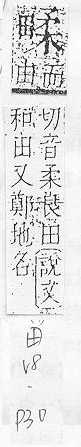 而
由
切音柔良田說文
和田又鄭地名
V8
P30